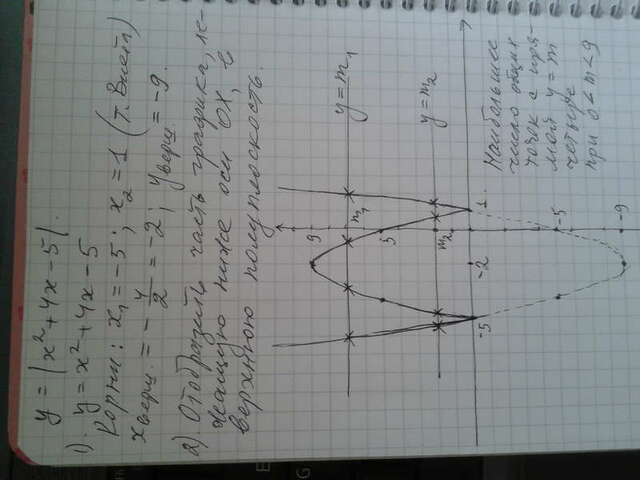 y = |x² + 4x - 5|.
1). y = x² + 4x - 5
Корни: x₁ = -5; x₂ = 1 (т. Виета)
xверш. = -4/2 = -2; yверш. = -9.
2) Отобразить часть графика, ле-
жащую ниже оси OX, в
верхнюю полуплоскость.
y = m₁
y = m₂
9
m₁
5
m₂
-5
-2
1
-5
-9
Наибольшее
число общих
точек с пря-
мой y = m
четыре
при 0 < m < 9